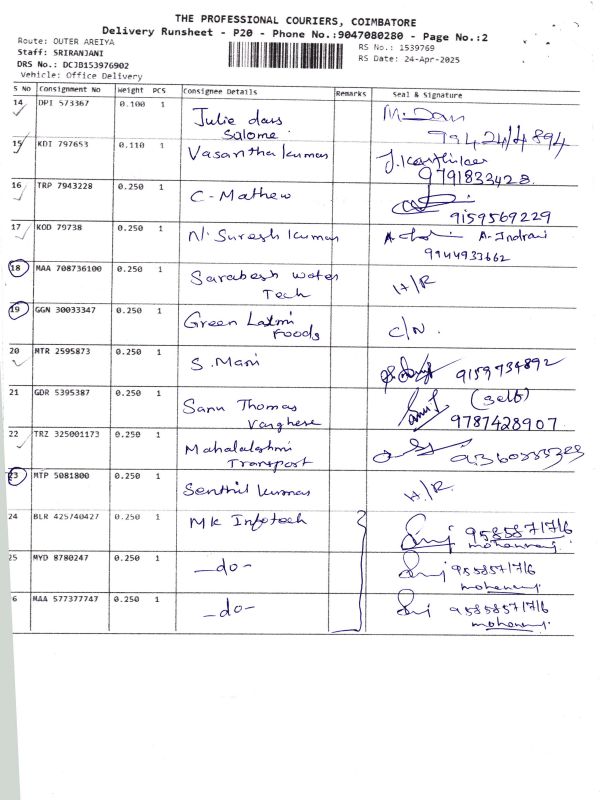 THE PROFESSIONAL COURIERS, COIMBATORE
Delivery Runsheet - P20 - Phone No.:9047080280 - Page No.:2
Route: OUTER AREIYA
Staff: SRIRANJANI
RS No.: 1539769
DRS No.: DCJB153976902
RS Date: 24-Apr-2025
Vehicle: Office Delivery
S No Consignment No Weight PCS Consignee Details Remarks Seal & Signature
14 DPI 573367 0.100 1 Julie dans Salome M. Dan
9942414894
15 KDI 797653 0.110 1 Vasantha kumar J. Karthikaa
9791833428
16 TRP 7943228 0.250 1 C-Mathew
9159569229
17 KOD 79738 0.250 1 N. Suresh kumar A. Indrani
9944933662
18 MAA 708736100 0.250 1 Sarabesh water Tech H/R
19 GGN 30033347 0.250 1 Green Laxmi Foods C/N.
20 MTR 2595873 0.250 1 S. Mani 9159734892
21 GDR 5395387 0.250 1 Sanu Thomas Varghese (self)
9787428907
22 TRZ 325001173 0.250 1 Mahalalshmi Transport
23 MTP 5081800 0.250 1 Senthil kumar H/R.
24 BLR 425740427 0.250 1 MK Infotech 9585871716
mohanraj.
25 MYD 8780247 0.250 1 -do- 9558571716
mohanraj.
6 MAA 577377747 0.250 1 -do- 9585871716
mohanraj.